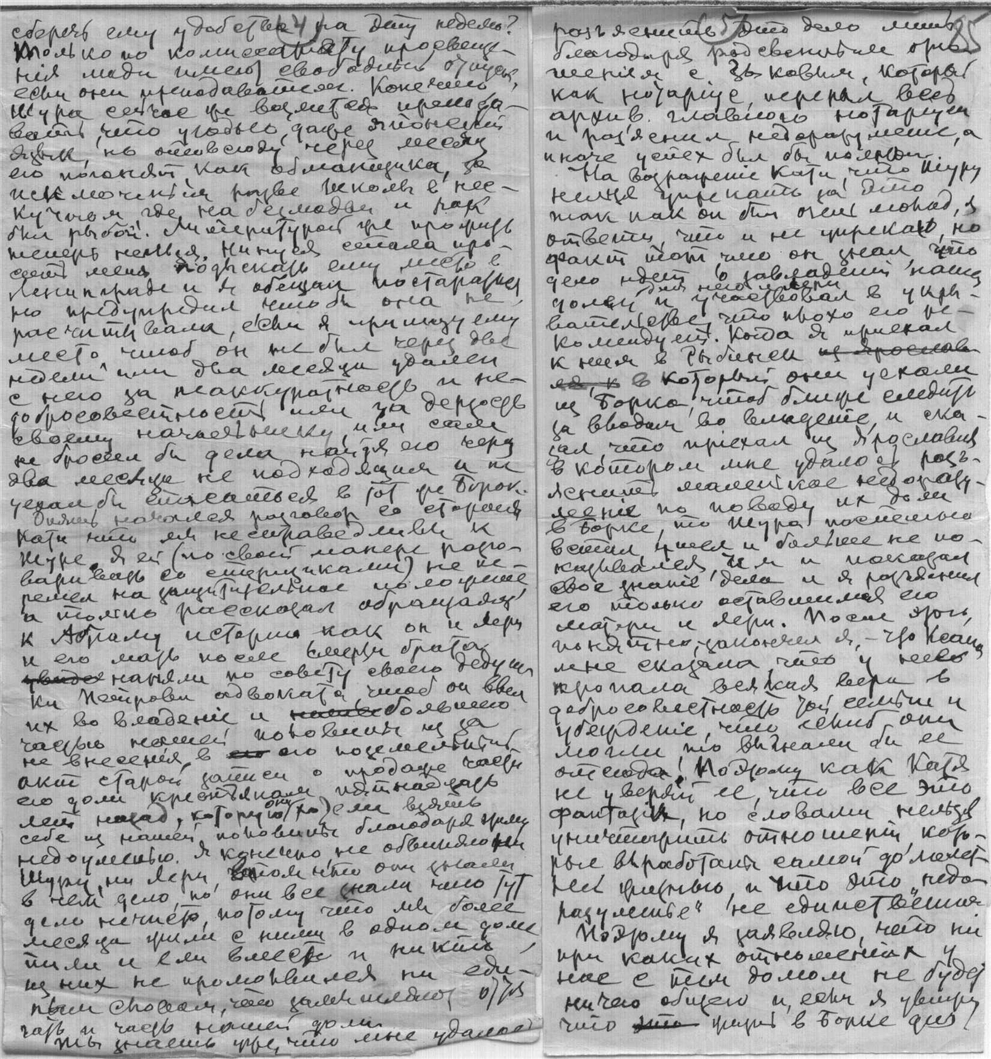 сберечь ему удобства на эту неделю?
Только по комиссариату просвеще-
ния люди имеют свободный отпуск,
если они преподаватели. Конечно
Шура сейчас же возьмется препода-
вать что угодно, даже японский
язык, но отовсюду через месяц
его погонят как обманщика, за
исключением разве школы в нес-
кучном, где на безлюдьи и рак
был рыбой. Литературой же прожить
теперь нельзя. Ксения сказала про-
сит меня подыскать ему место в
Ленинграде и я обещал постараться
но предупредил чтобы она не
расчитывала, если я приищу ему
место, чтоб он не был через две
недели или два месяца удален
с него за неаккуратность и не-
добросовестность или за дерзость
своему начальнику, или сам
не бросил бы дела найдя его через
два месяца не подходящим и не
уехал бы спасаться в тот же Борок.
Опять начался разговор со стороны
Кати что мы несправедливы к
Шуре. Я ей (по своей манере разго-
варивать со спорщиками) не пе-
решел на защитительное положение
а только рассказал обращаясь
к Абраму историю как он и Лери
и его мать после смерти брата
наняли по совету своего дедуш-
ки Петрова адвоката, чтоб он ввел
их во владение и большею
частью нашей половины из за
не внесения в его поземельный
акт старой записи о продаже части
его доли крестьянам пятнадцать
лет назад, которую они хотели взять
себе из нашей половины благодаря этому
недоумению. Я конечно не обвиняю ни
Шуру, ни Лери, в том что они знали
в чем дело, но они все знали что тут
дело нечисто, потому что мы более
месяца жили с ними в одном доме
пили и ели вместе и никто
из них не промолвился ни еди-
ным словом, что замышляют оття-
гать и часть нашей доли.
Ты знаешь уже, что мне удалось
разъяснить это дело лишь
благодаря родственным отно-
шениям с Зыковым, который
как нотариус, перерыл весь
архив главного нотариуса
и разъяснил недоразумение, а
иначе успех был бы полный.
На возражение Кати, что Шуру
нельзя упрекать за это
так как он был очень молод, я
ответил, что и не упрекаю, но
факт тот что он знал, что
дело идет о завладении нашей
долей для него и Лери и участвовал в укры-
вательстве, что плохо его ре-
комендует. Когда я приехал
к ним в Рыбинск
в который они уехали
из Борка, чтоб ближе следить
за вводом во владение, и ска-
зал, что приехал из Ярославля
в котором мне удалось разъ-
яснить маленькое недоразу-
мение по поводу их доли
в Борке, то Шура поспешно
встал, ушел и больше не по-
казывался, чем и показал
свое знание дела и я разъяснил
его только оставшимся его
матери и Лери. После этого,
понятно, закончил я, — что Ксана
мне сказала, что у нее
пропала всякая вера в
добросовестность той семьи и
убеждение, что если б они
могли то выгнали бы ее
отсюда! Поэтому как Катя
не уверяй ее, что все это
фантазия, но словами нельзя
уничтожить отношений кото-
рые выработаны самой домаш-
ней жизнью, и что это „недо-
разумение" не единственное
Поэтому я заявляю, что ни
при каких отношениях у
нас с тем домом не будет
ничего общего и, если я увижу
что жизнь в Борке для